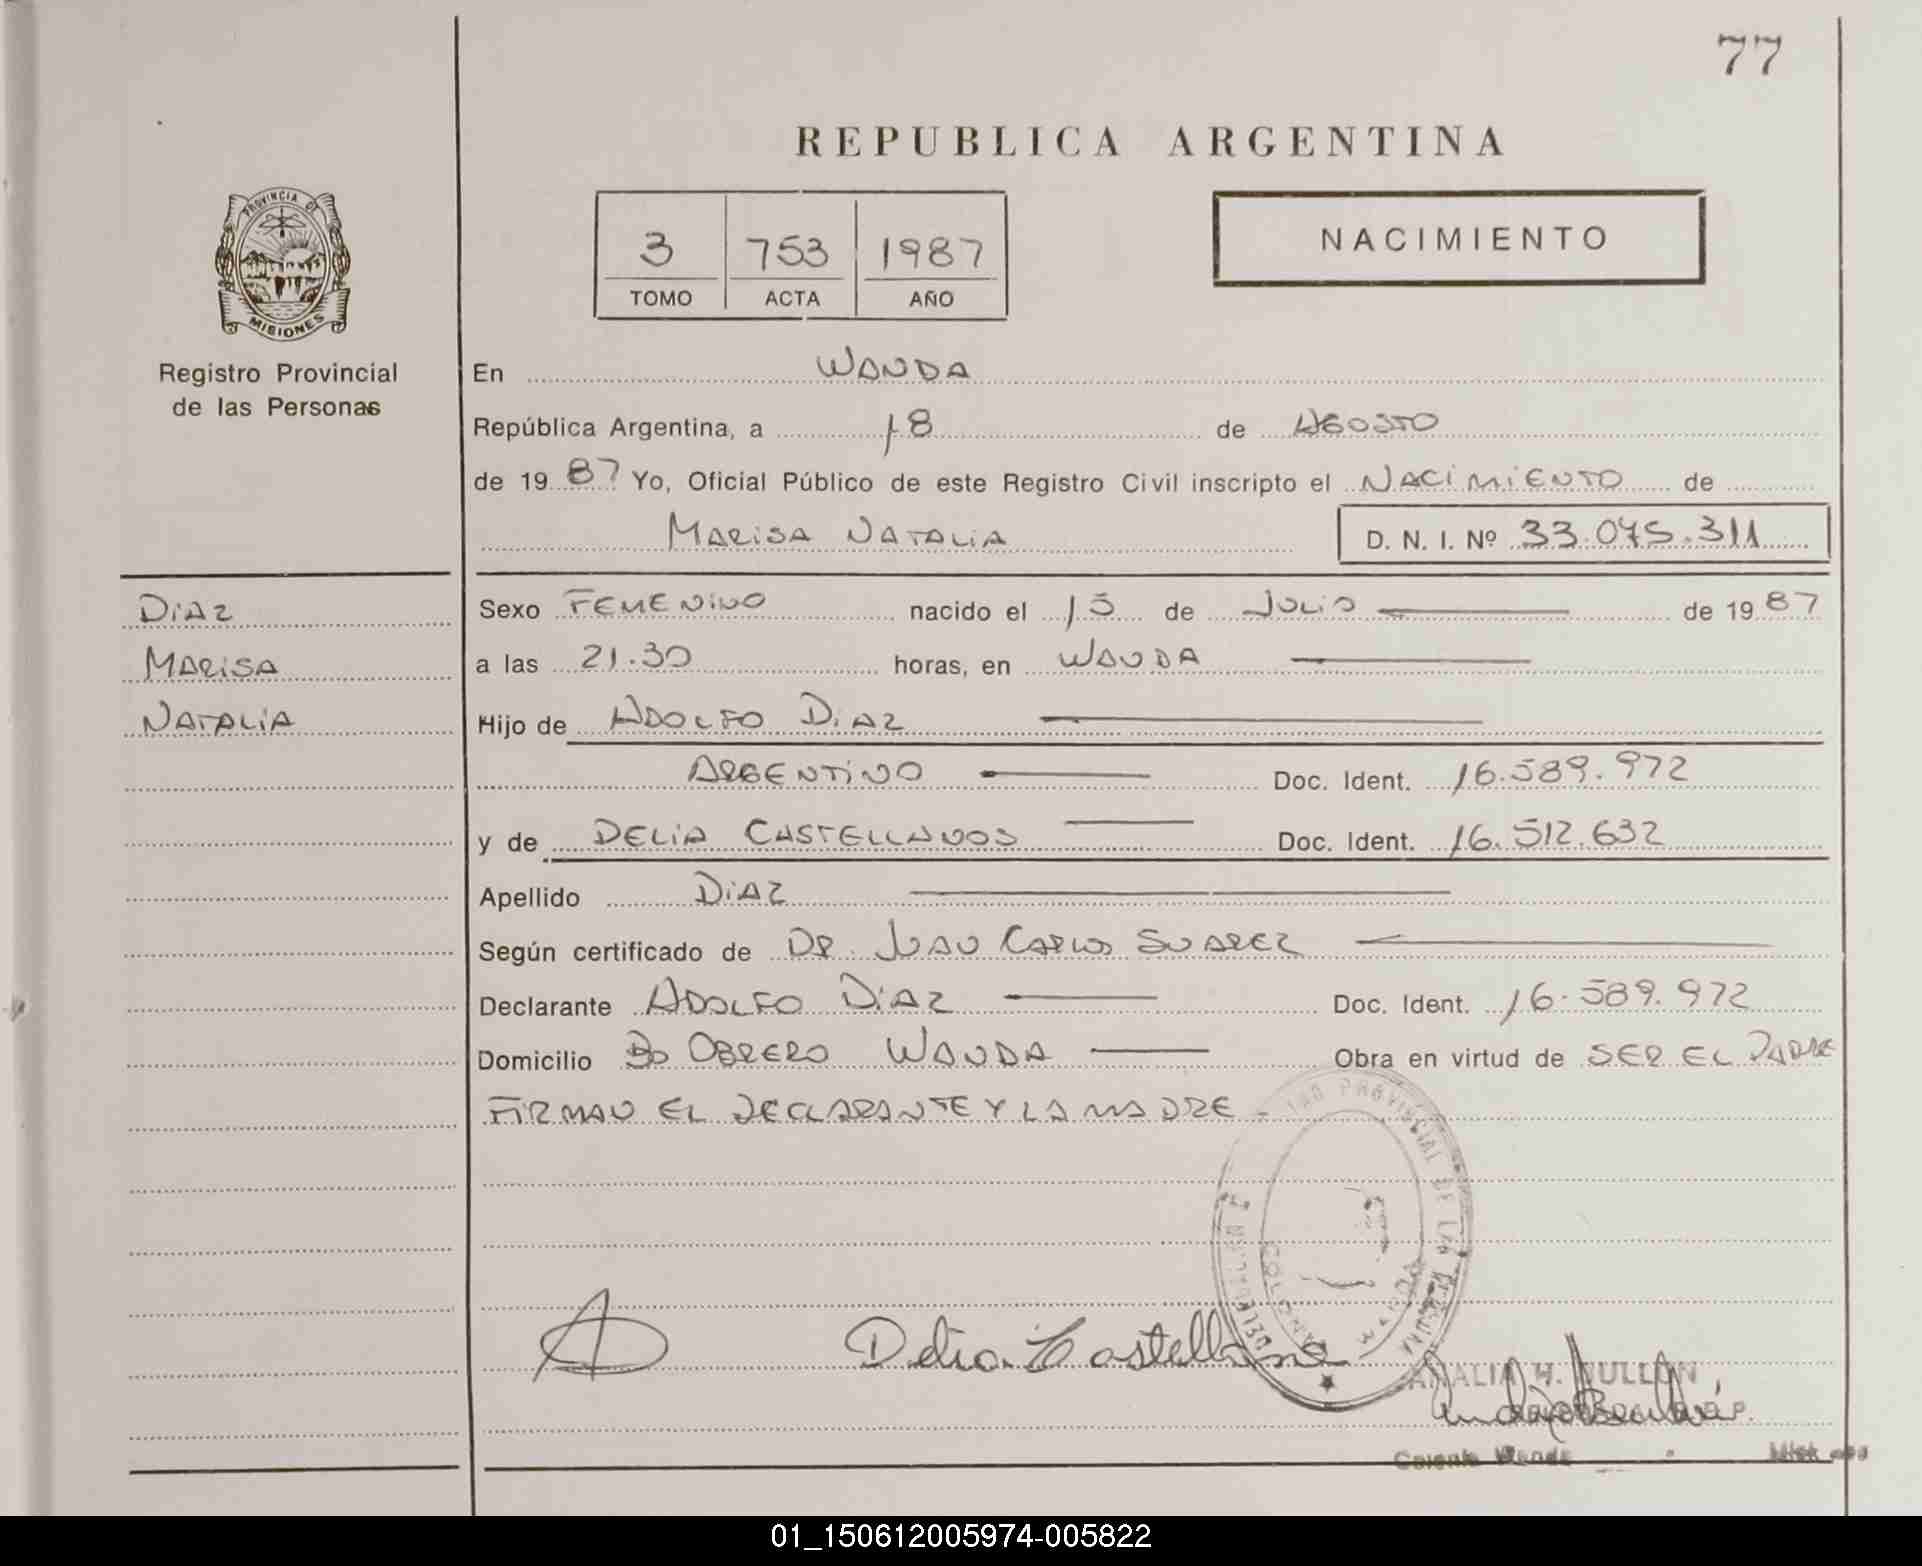 77
REPUBLICA ARGENTINA
PROVINCIA DE
MISIONES
Registro Provincial
de las Personas
3 753 1987
TOMO ACTA AÑO
NACIMIENTO
En WANDA
República Argentina, a 18 de AGOSTO
de 1987 Yo, Oficial Público de este Registro Civil inscripto el NACIMIENTO de
MARISA NATALIA D. N. I. Nº 33.075.311
DIAZ
MARISA
NATALIA
Sexo FEMENINO nacido el 15 de JULIO de 1987
a las 21.30 horas, en WANDA
Hijo de ADOLFO DIAZ
ARGENTINO Doc. Ident. 16.589.972
y de DELIA CASTELLANOS Doc. Ident. 16.512.632
Apellido DIAZ
Según certificado de DR. JUAN CARLOS SUAREZ
Declarante ADOLFO DIAZ Doc. Ident. 16.589.972
Domicilio Bo OBRERO WANDA Obra en virtud de SER EL PADRE
FIRMAN EL DECLARANTE Y LA MADRE -
PROVINCIAL DE LAS
WANDA
Delia Castellano
ANALIA H.
Colonia Wanda
01_150612005974-005822